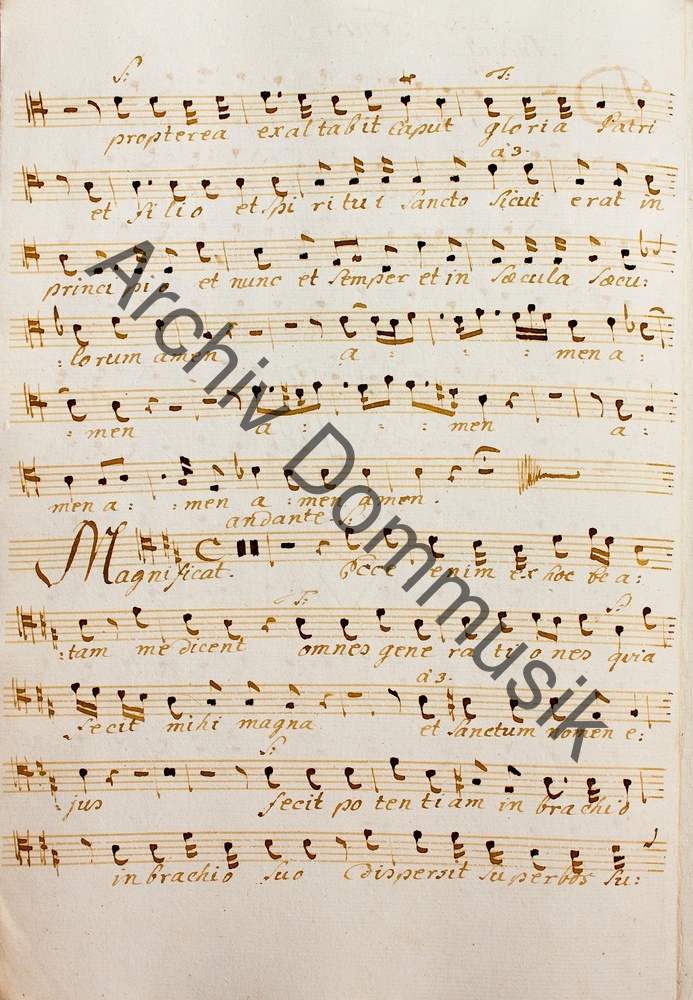 S:
propterea exaltabit caput gloria Patri
T:
à 3.
et filio et Spiritui sancto sicut erat in
principio et nunc et semper et in sæcula sæcu:
:lorum amen a : : : men a :
: men : a : : : men : a :
men a : : men a : men amen.
andante S:
Magnificat. Ecce enim ex hoc be a:
T: S:
:tam me dicent omnes generationes quia
à 3.
fecit mihi magna et sanctum nomen e:
S:
:jus fecit potentiam in brachio
in brachio suo Dispersit superbos su:
Archiv Dommusik